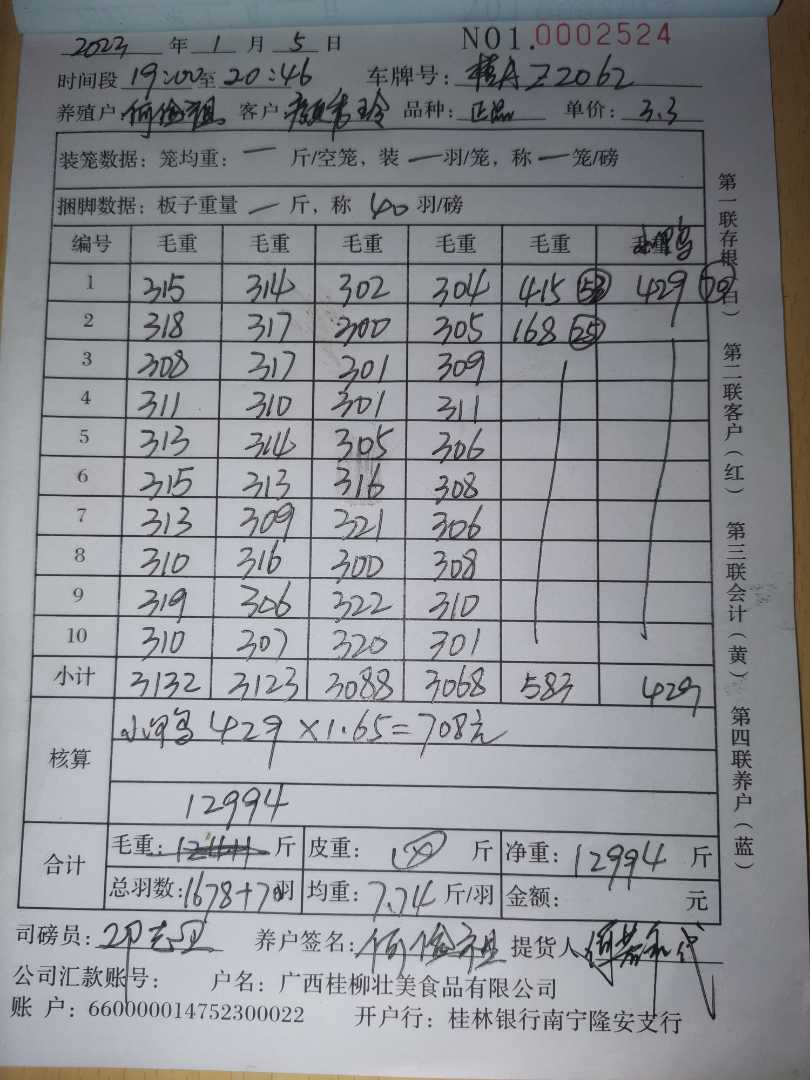 2023 年 1 月 5 日 NO1.0002524
时间段 19:00 至 20:46 车牌号: 桂A Z2062
养殖户 何俊祖 客户 颜秀玲 品种: 正品 单价: 3.3
装笼数据: 笼均重: 一 斤/空笼, 装 一 羽/笼, 称 一 笼/磅
捆脚数据: 板子重量 一 斤, 称 40 羽/磅
编号 毛重 毛重 毛重 毛重 毛重
1 315 314 302 304 415 (53) 429 (70)
2 318 317 300 305 168 (25)
3 308 317 301 309
4 311 310 301 311
5 313 314 305 306
6 315 313 316 308
7 313 309 321 306
8 310 316 300 308
9 319 306 322 310
10 310 307 320 301
小计 3132 3123 3088 3068 583 429
核算 429 ×1.65=708元
12994
合计 毛重: 斤 皮重: 斤 净重: 12994 斤
总羽数: 1678+70羽 均重: 7.74 斤/羽 金额: 元
司磅员: 养户签名: 何俊祖 提货人
公司汇款账号: 户名: 广西桂柳壮美食品有限公司
账 户: 660000014752300022 开户行: 桂林银行南宁隆安支行
第一联存根(白) 第二联客户(红) 第三联会计(黄) 第四联养户(蓝)